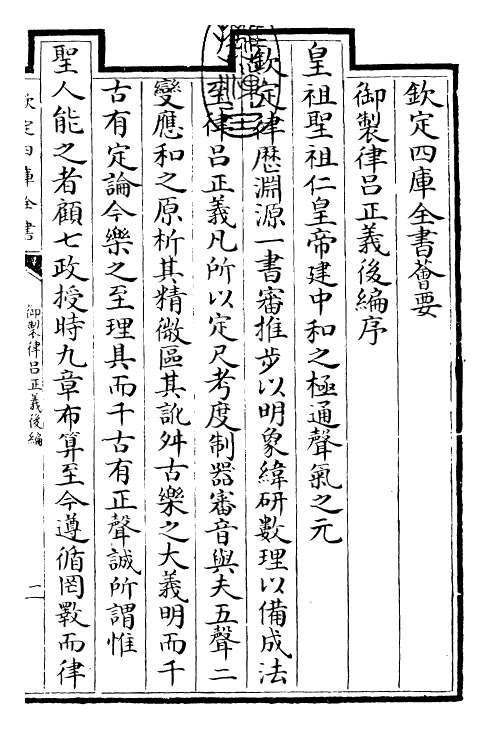 欽定四庫全書薈要
御製律呂正義後編序
皇祖聖祖仁皇帝建中和之極通聲氣之元
欽定律厯淵源一書審推步以明象緯研數理以備成法
至律呂正義凡所以定尺考度制器審音與夫五聲二
變應和之原析其精微區其訛舛古樂之大義明而千
古有定論今樂之至理具而千古有正聲誠所謂惟
聖人能之者顧七政授時九章布算至今遵循罔斁而律
欽定四庫全書
御製律呂正義後編
二